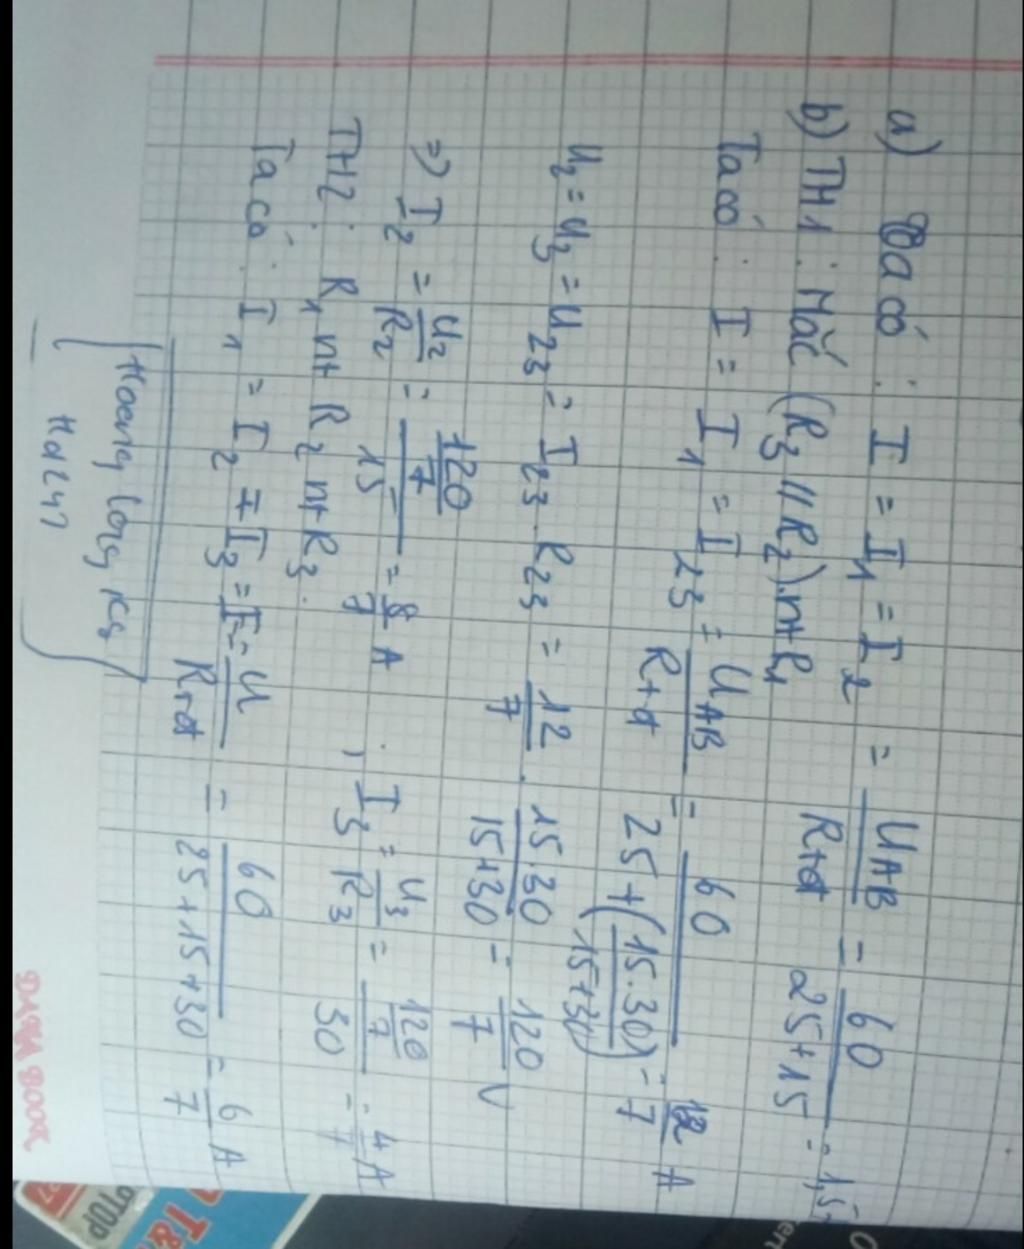 a) Ta có : I = I1 = I2 = UAB/Rtđ = 60/25+15 = 1,5
b) TH1 : Mắc (R3 // R2) nt R1
Ta có : I = I1 = I23 = UAB/Rtđ = 60/25+(15.30/15+30) = 12/7 A
U2 = U3 = U23 = I23 . R23 = 12/7 . 15.30/15+30 = 120/7 V
=> I2 = U2/R2 = 120/7/15 = 8/7 A , I3 = U3/R3 = 120/7/30 = 4/7 A
TH2 : R1 nt R2 nt R3.
Ta có : I1 = I2 = I3 = I = U/Rtđ = 60/25+15+30 = 6/7 A
Hoang
Hd247